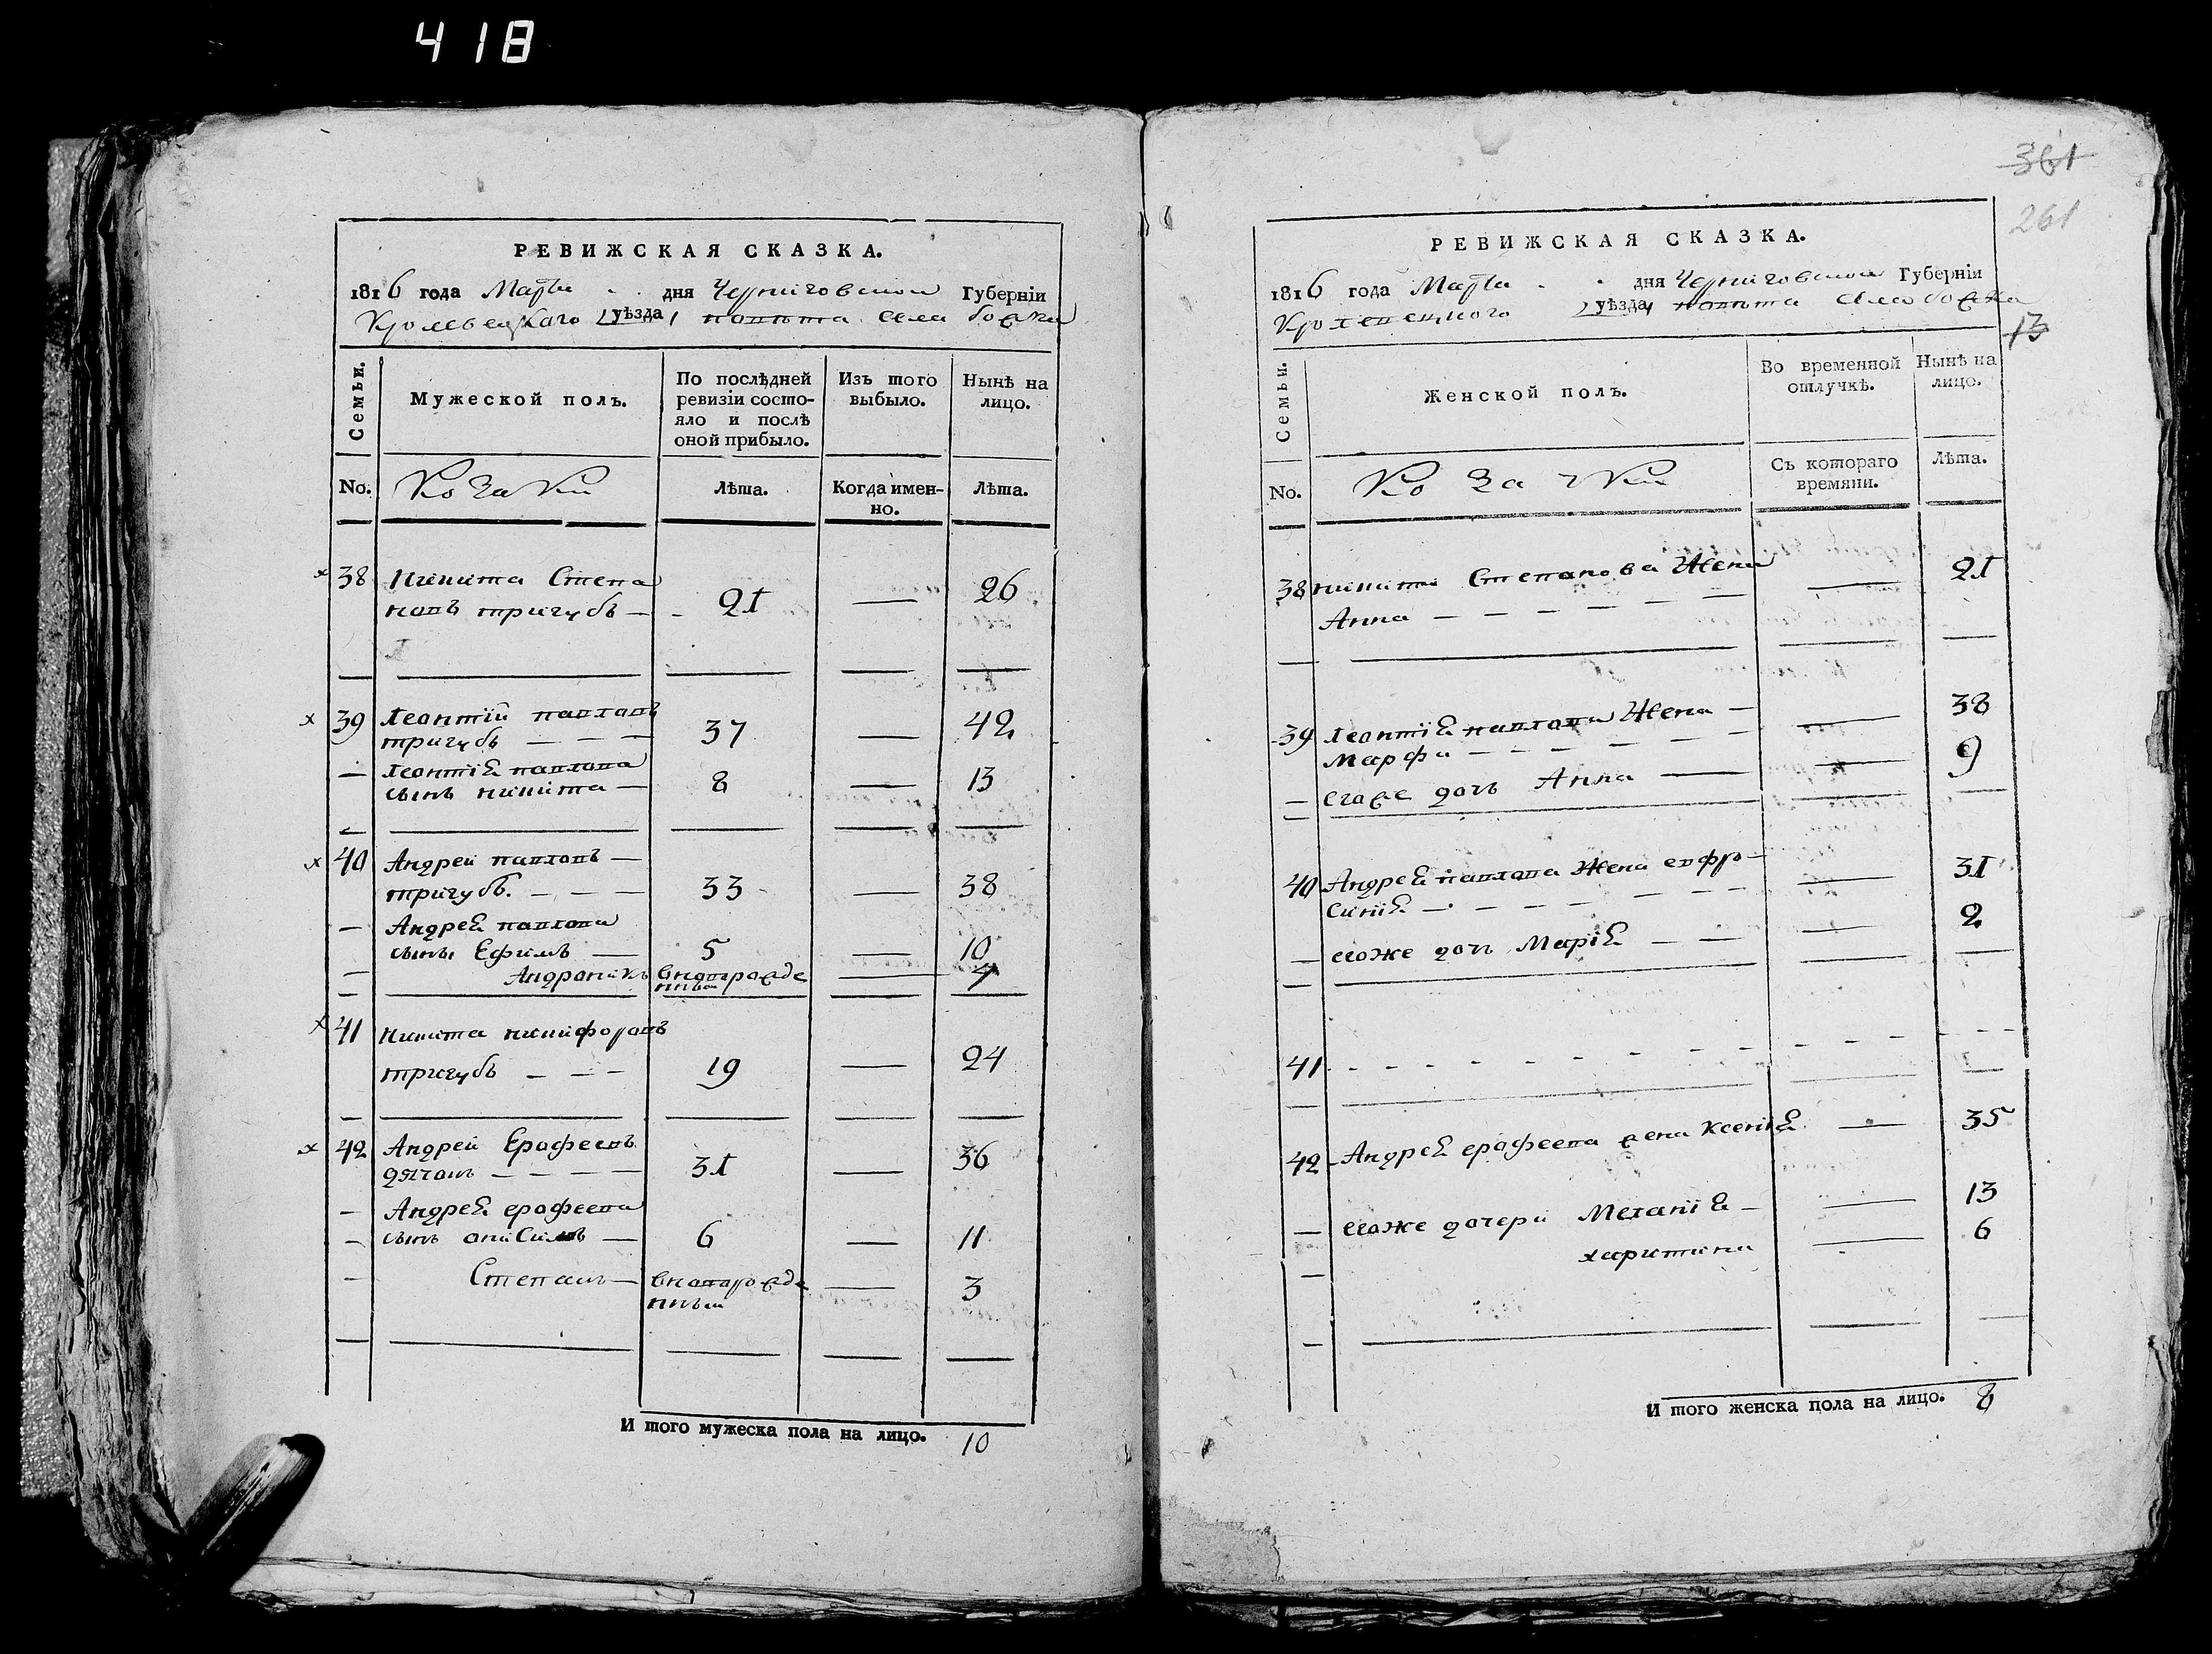 418
РЕВИЖСКАЯ СКАЗКА.
1816 года Марта дня Черниговской Губерніи
Кролевецкаго уѣзда, повѣта села божка
Семьи.
Мужеской полъ.
По послѣдней ревизіи состо-
яло и послѣ
оной прибыло.
Изъ того
выбыло.
Нынѣ на
лицо.
No.
Козаки
Лѣта.
Когда имен-
но.
Лѣта.
38 Никита Степа
новъ тригубъ 21 — 26
39 Леонтій павловъ
тригубъ 37 — 42
Леонтія павлова
сынъ никита 8 — 13
40 Андрей павловъ
тригубъ. 33 — 38
Андрея павлова
сыны Ефимъ 5 — 10
Андроникъ вновпорожде
нный — 4
41 Никита никифоровъ
тригубъ 19 — 24
42 Андрей Ерофеевъ
31 — 36
Андрея ерофеева
сынъ онисимъ 6 — 11
Степанъ вновпорожде
нный — 3
И того мужеска пола на лицо. 10
361
261
РЕВИЖСКАЯ СКАЗКА.
1816 года Марта дня Черниговской Губерніи
Кролевецкого уѣзда, повѣта села божка
13
Семьи.
Женской полъ.
Во временной
отлучкѣ.
Нынѣ на
лицо.
No.
Козачки
Съ котораго
времяни.
Лѣта.
38 никиты Степанова Жена
Анна — 21
39 Леонтія павлова Жена
Марфа — 38
егоже дочь Анна — 9
40 Андрея павлова Жена евфро
синія — 31
егоже дочь Марія — 2
41
42 Андрея ерофеева жена Ксенія — 35
егоже дочери Меланія — 13
харитина — 6
И того женска пола на лицо. 8